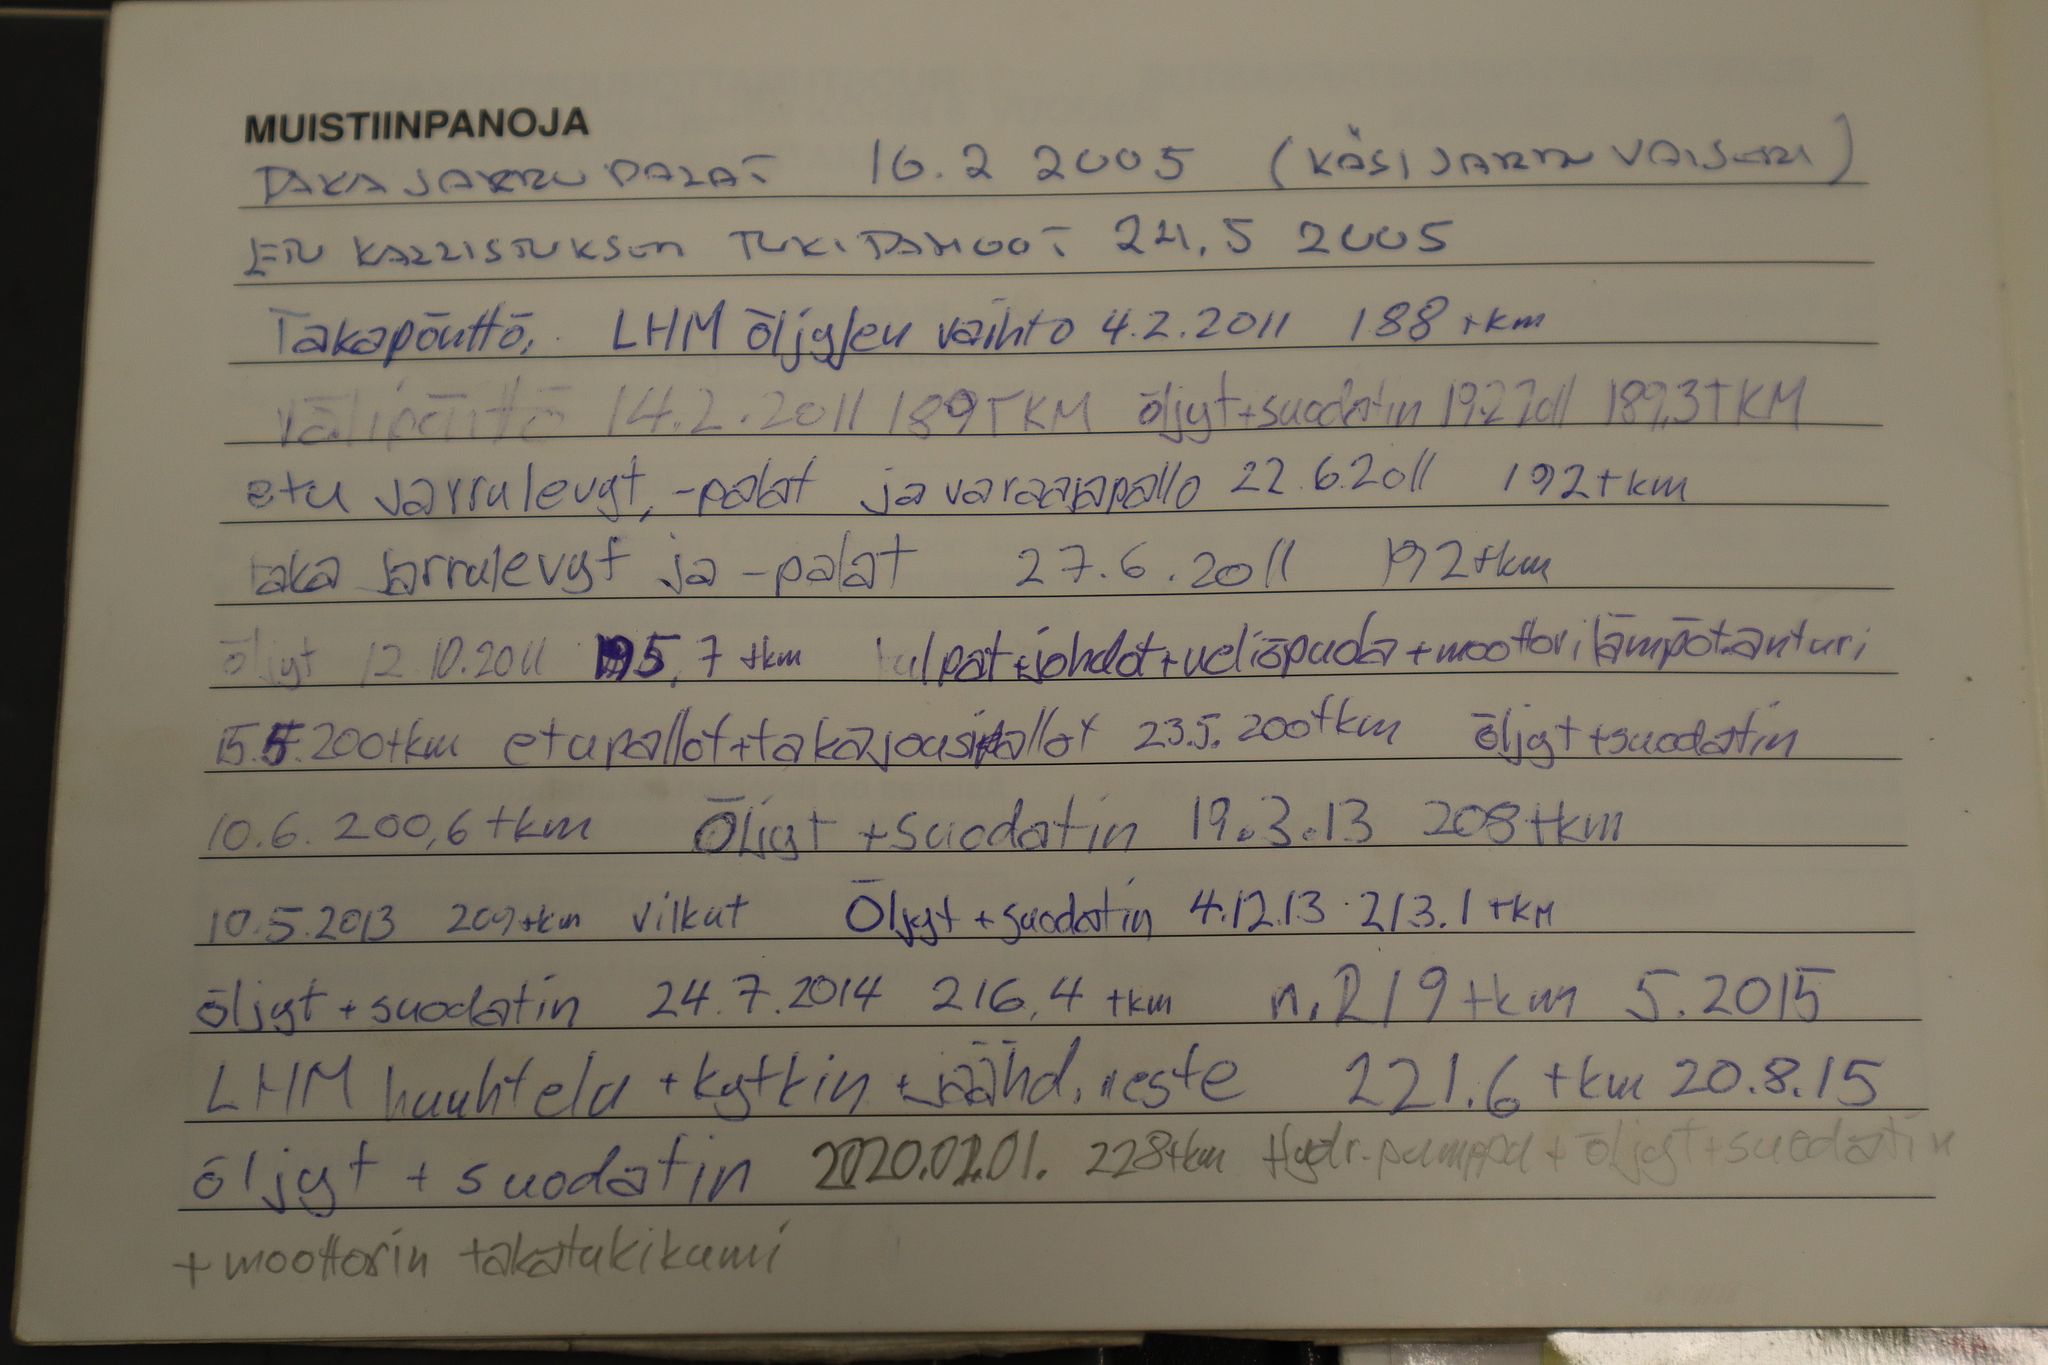 MUISTIINPANOJA
TAKA JARRU PALAT 16.2 2005 (KÄSI JARRU VAIJERI)
ETU KALLISTUKSEN TUKI TANGOT 24.5 2005
Takapönttö, LHM öljyjen vaihto 4.2.2011 188 tkm
Välipönttö 14.2.2011 189TKM öljyt+suodatin 19.2.2011 189,3TKM
etu jarrulevyt, -palat ja varaajapallo 22.6.2011 192tkm
taka jarrulevyt ja -palat 27.6.2011 192tkm
öljyt 12.10.2011 195,7 tkm tulpat+johdot+neliöpuola+moottorilämpötanturi
15.5. 200tkm etupallot+takajousipallot 23.5. 200tkm öljyt+suodatin
10.6. 200,6tkm Öljyt +suodatin 19.3.13 208tkm
10.5.2013 209tkm vilkut Öljyt+suodatin 4.12.13 213.1 tkm
öljyt+suodatin 24.7.2014 216,4 tkm n.219tkm 5.2015
LHM huuhtelu +kytkin +jäähd.neste 221.6tkm 20.8.15
öljyt + suodatin 2020.02.01. 228tkm Hydr.pumppu+öljyt+suodatin
+moottorin takatukikumi